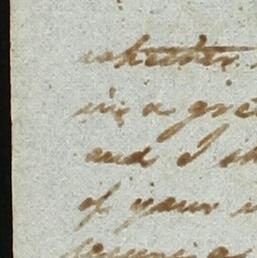 whether
in a gre
and I sh
of your